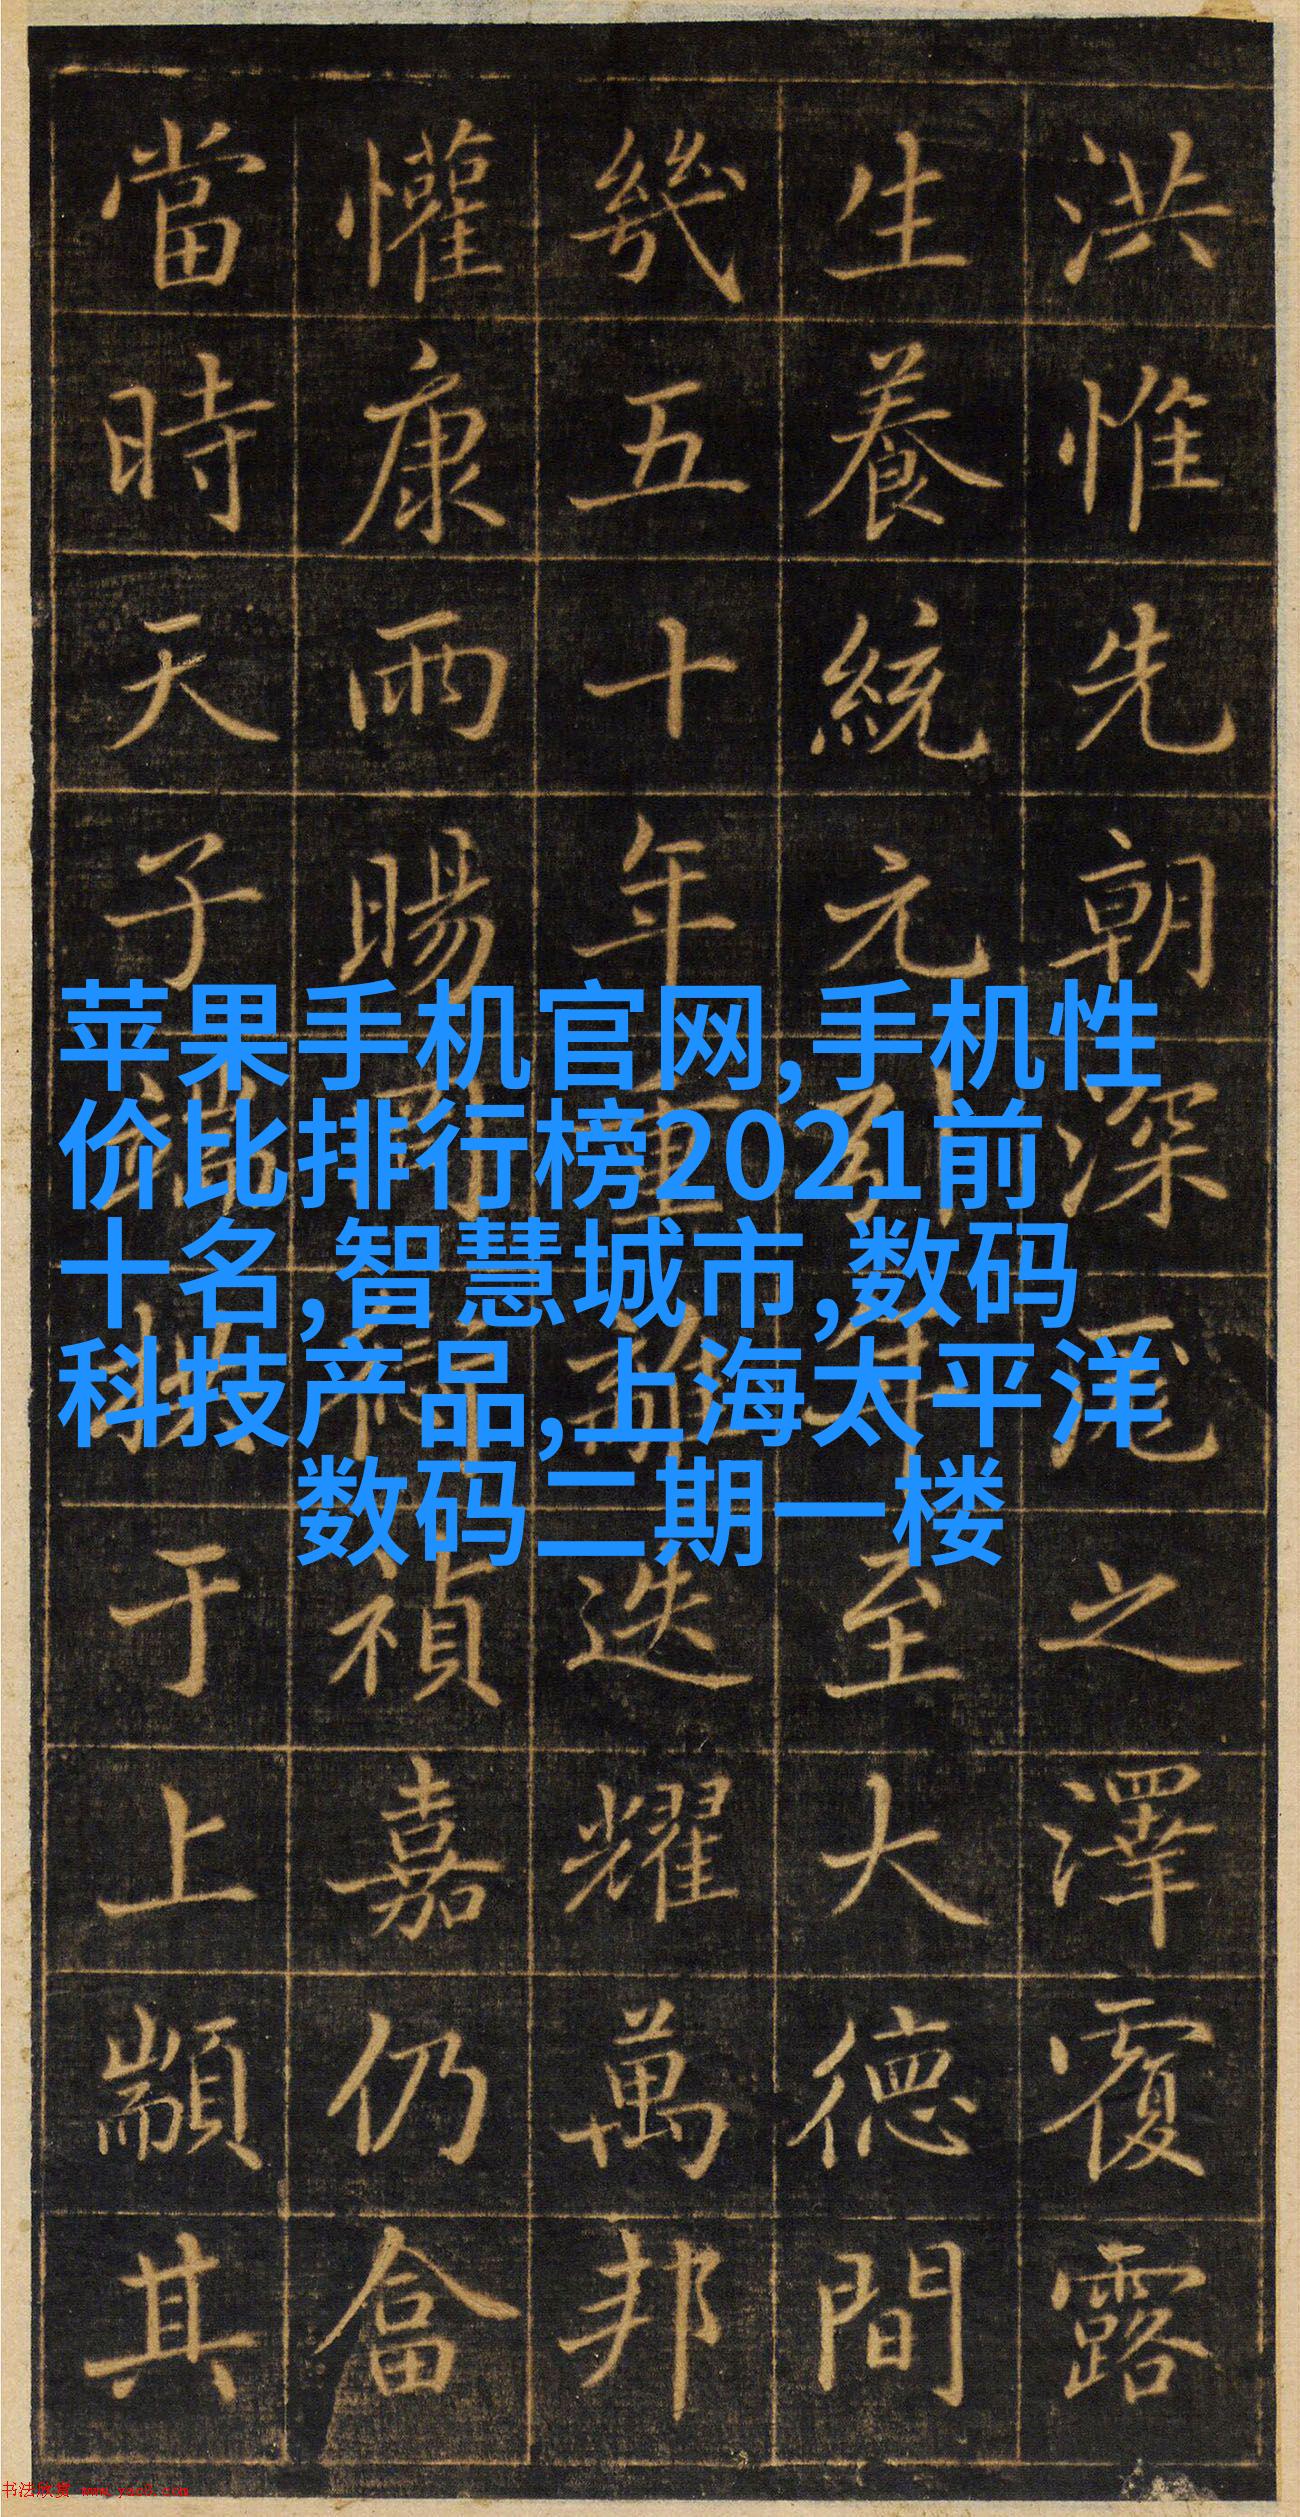 洪惟先朝深之澤覆露
生養統元年至大德間
幾五十年重離迭耀萬邦
懽康雨暘禎嘉仍畣
當時天子端拱于上顓其
苹果手机官网,手机性
价比排行榜2021前
十名,智慧城市,数码
科技产品,上海太平洋
数码二期一楼
书法欣赏 www.yac8.com